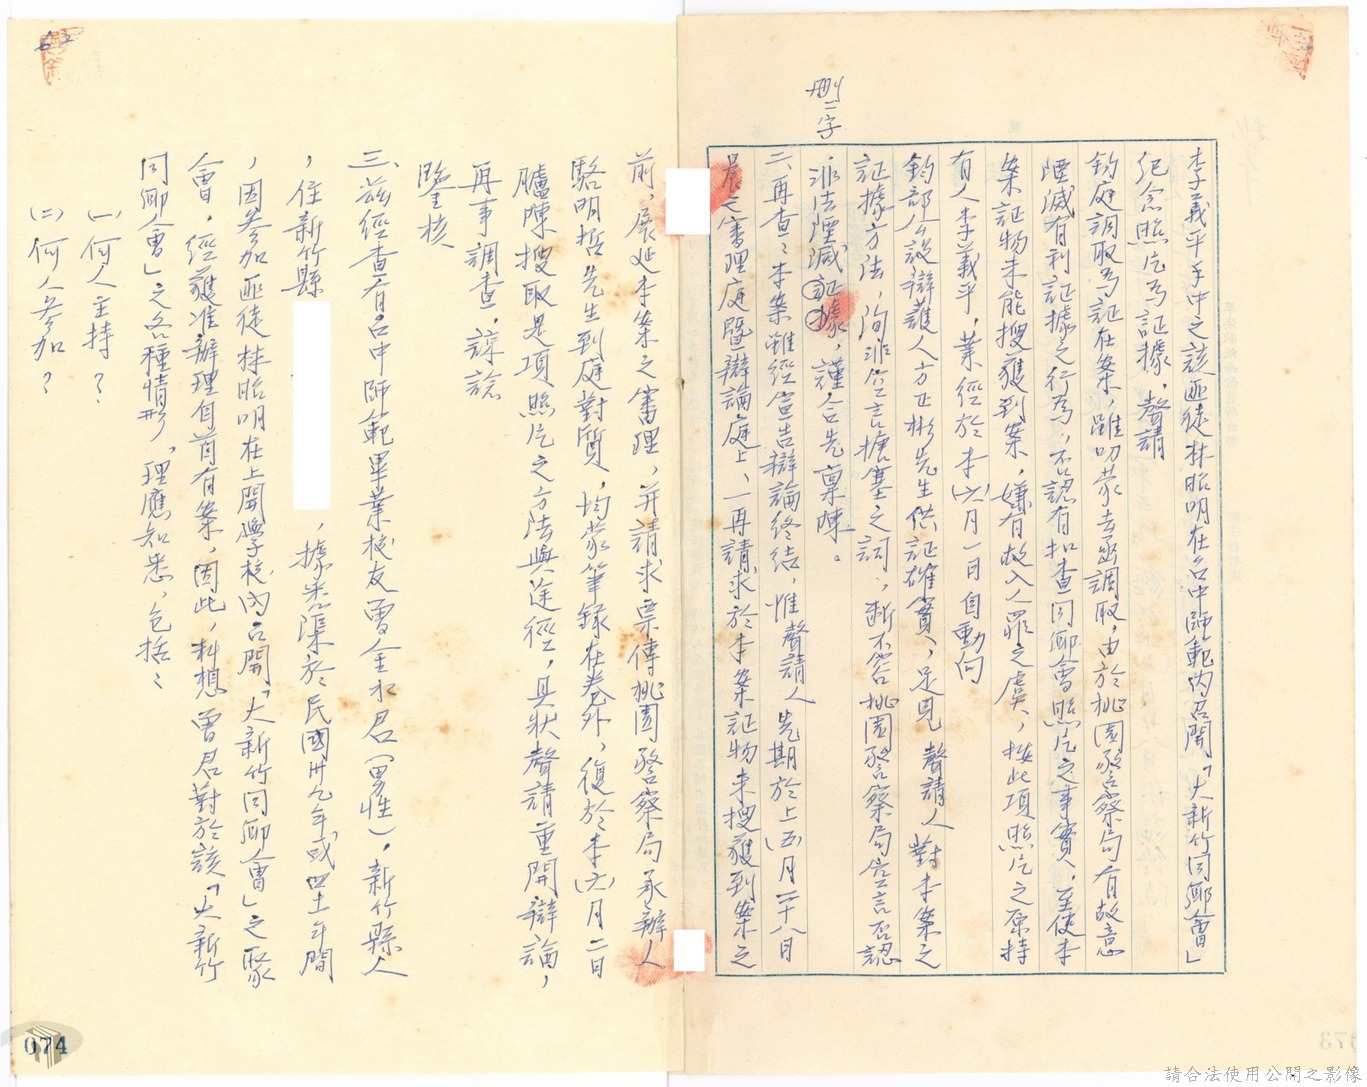 李義平手中之該匪徒林昭明在台中師範內召開「大新竹同鄉會」
紀念照片為証據，聲請
鈞庭調取為証在案，雖叨蒙去函調取，由於桃園警察局有故意
湮滅有利証據之行為，否認有扣查同鄉會照片之事實，至使本
案証物未能搜獲到案，嫌有故入人罪之虞，按此項照片之原持
有人李義平，業經於本(六)月一日自動向
鈞部公設辯護人方正彬先生供証確實，足見 聲請人對本案之
証據方法，洵非空言搪塞之詞，斷不容桃園警察局空言否認
非法湮滅証據，謹合先稟陳。
刪二字
二、再查：本案雖經宣告辯論終結，惟聲請人先期於上(五)月二十八日
晨之審理庭暨辯論庭上，一再請求於本案証物未搜獲到案之
前，展延本案之審理，并請求票傳桃園警察局承辦人
駱明哲先生到庭對質，均蒙筆錄在卷外，復於本(六)月二日
臚陳搜取是項照片之方法與途徑，具狀聲請重開辯論，
再事調查，諒諗
鑒核
三、茲經查有台中師範畢業校友曾金水君(男性)，新竹縣人
，住新竹縣　　　，據采集於民國卅九年或四十年間
，因參加匪徒林昭明在上開學校內召開「大新竹同鄉會」之聚
會，經獲准辦理自首有案，因此，料想曾君對於該「大新竹
同鄉會」之各種情形，理應知悉，包括：
(一)何人主持？
(二)何人參加？
074
請合法使用公開之影像